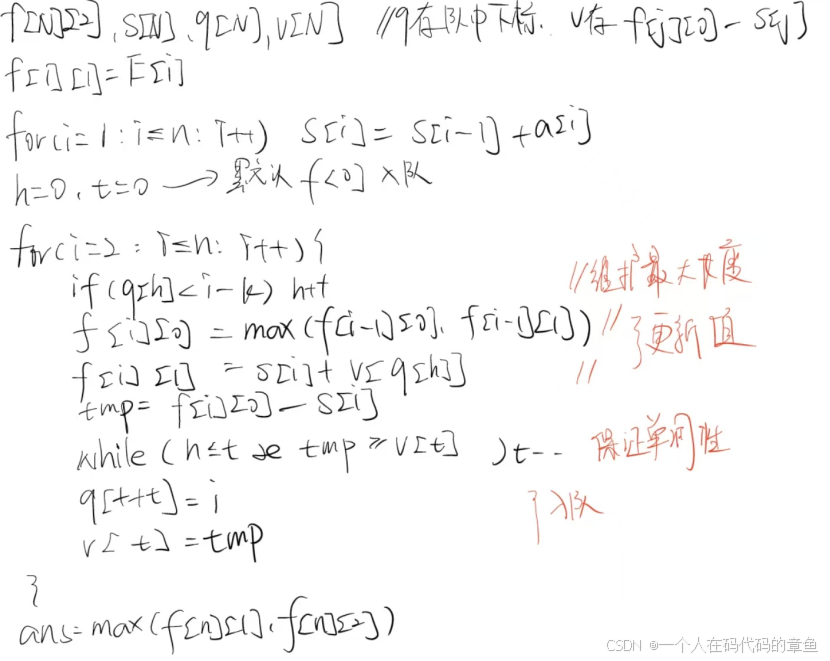 f[N][2], S[N], q[N], v[N] //q存队中下标. v存 f[j][0]-S[j]
f[1][1]=E[i]
for(i=1:i≤n:i++) S[i]=S[i-1]+a[i]
h=0.t=0 → 默认f<0]入队
for(i=2:i≤n:i++){
if(q[h]<i-k) h++ //维护最大长度
f[i][0]=max(f[i-1][0].f[i-1][1]) // 更新值
f[i][1]=S[i]+v[q[h]] //
tmp=f[i][0]-S[i]
while(h≤t && tmp≥v[t] )t-- 保证单调性
q[++t]=i 入队
v[t]=tmp
}
ans=max(f[n][1].f[n][2])
CSDN @一个人在码代码的章鱼